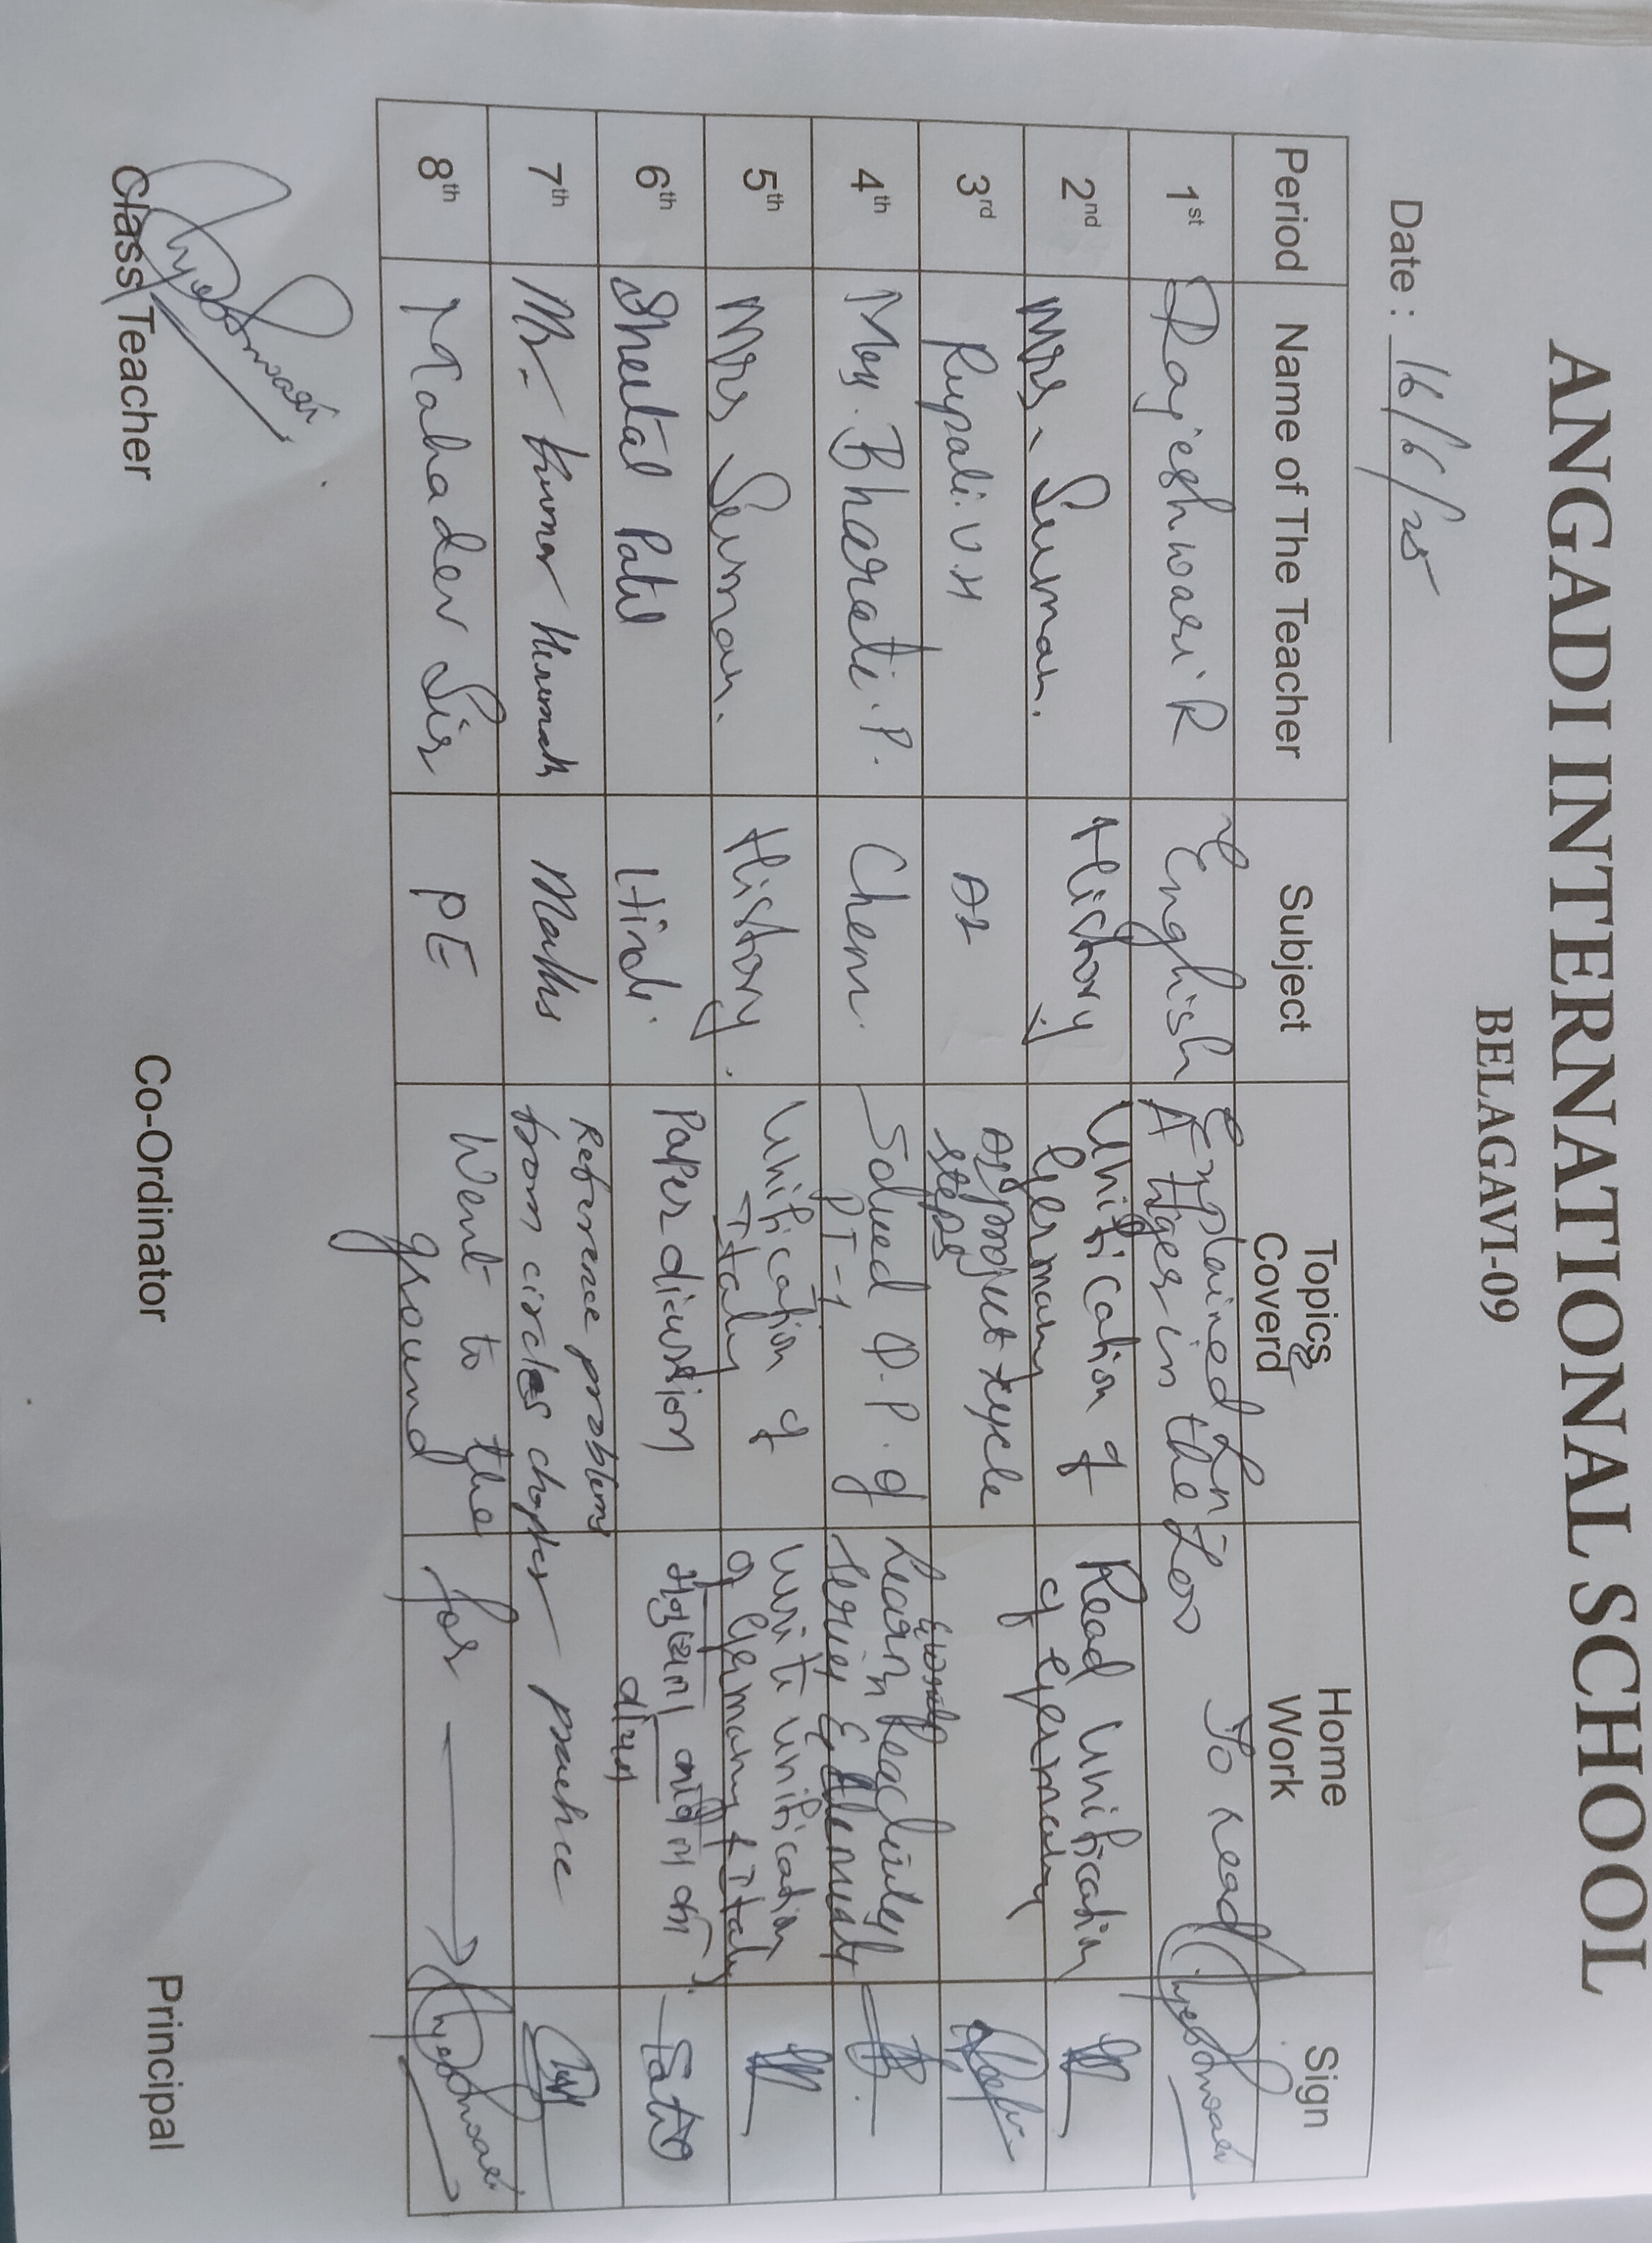 ANGADI INTERNATIONAL SCHOOL
BELAGAVI-09
Date : 16/6/25
Period Name of The Teacher Subject Topics Coverd Home Work Sign
1st Rajeshwari R English Explained Ln A Tiger in the Zoo To read
2nd Mrs. Suman. History Unification of Germany Read Unification of Germany
3rd Rupali V.H AI AI project cycle steps
4th Mrs. Bharati.P. Chem. Solved Q.P. of PT-1 Learn Reactivity series &
5th Mrs Suman. History. Unification of Italy Write unification of Germany & Italy
6th Sheetal Patil Hindi. Paper discussion
7th Mr. Kumar Hiremath Maths Reference problems from circles chapter
8th Mahadev Sir PE Went to the ground for
Class Teacher Co-Ordinator Principal